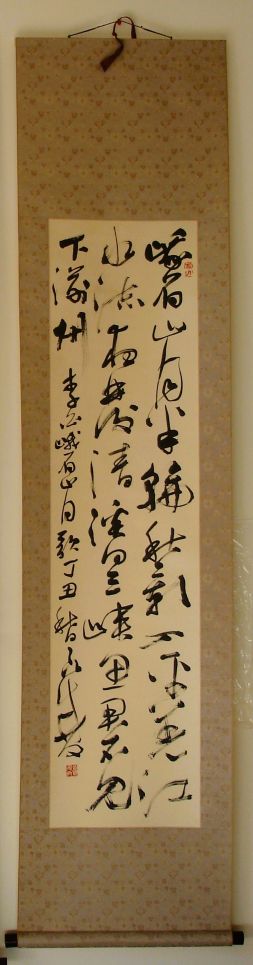 峨眉山月半輪秋影入平羌江
水流夜發清溪向三峽思君不見
下渝州 李白峨眉山月歌丁丑